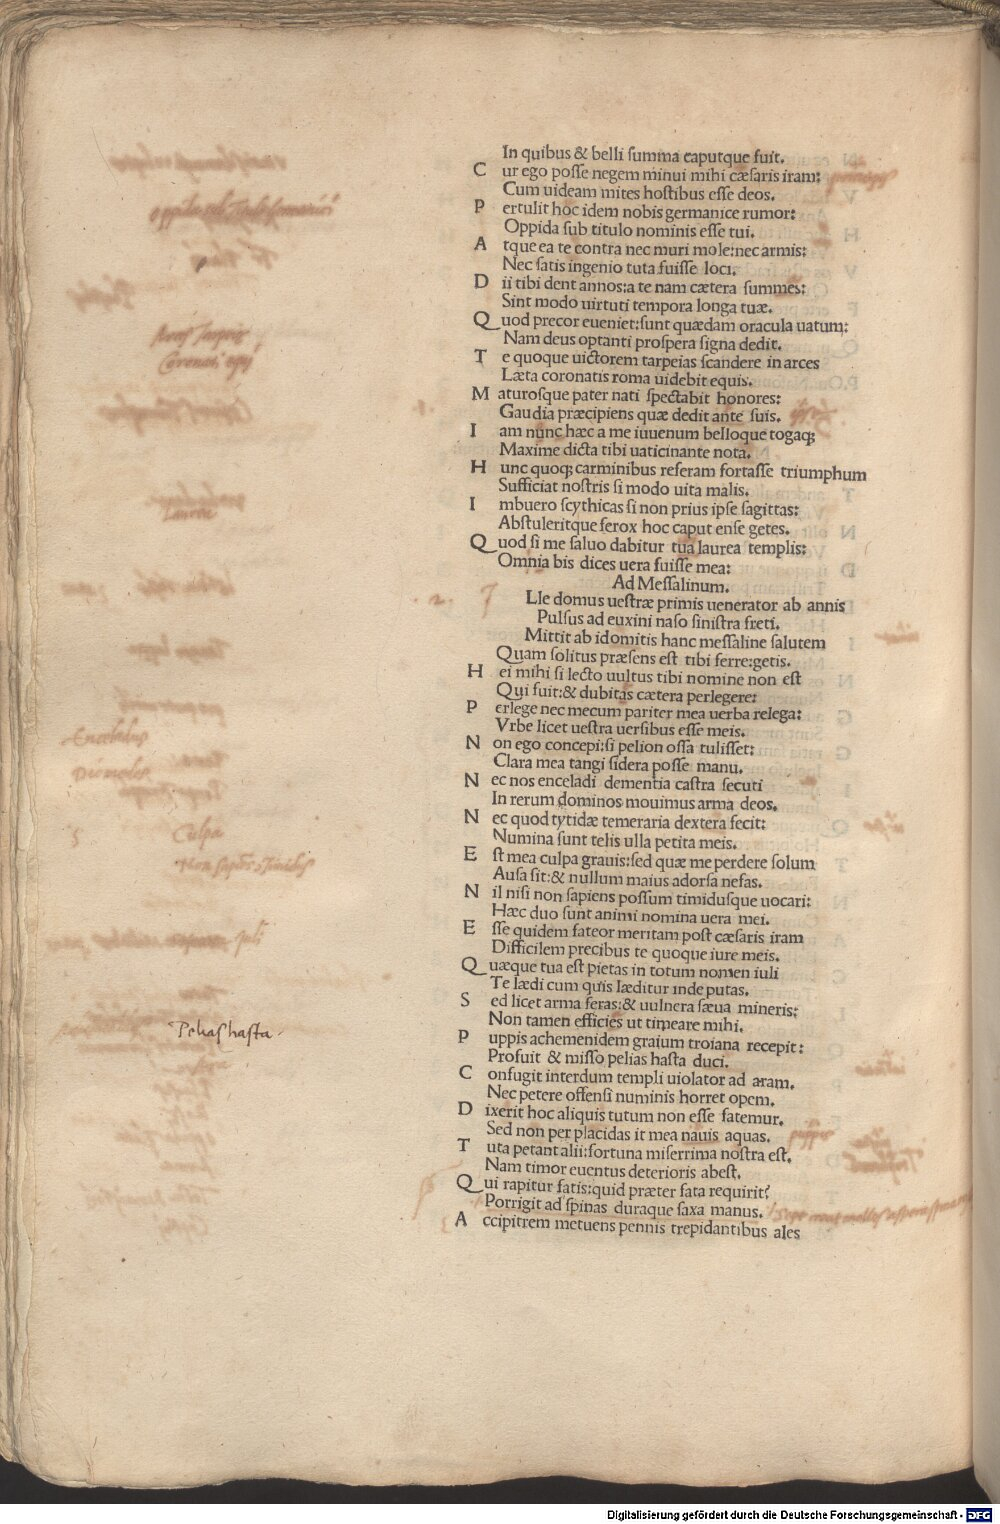 In quibus & belli summa caputque fuit.
C ur ego posse negem minui mihi cæsaris iram:
Cum uideam mites hostibus esse deos.
P ertulit hoc idem nobis germanice rumor:
Oppida sub titulo nominis esse tui.
A tque ea te contra nec muri mole:nec armis:
Nec satis ingenio tuta fuisse loci.
D ii tibi dent annos:a te nam cætera summes:
Sint modo uirtuti tempora longa tuæ.
Q uod precor eueniet:sunt quædam oracula uatum:
Nam deus optanti prospera signa dedit.
T e quoque uictorem tarpeias scandere in arces
Læta coronatis roma uidebit equis.
M aturosque pater nati spectabit honores:
Gaudia præcipiens quæ dedit ante suis.
I am nunc hæc a me iuuenum belloque togaq;
Maxime dicta tibi uaticinante nota.
H unc quoq; carminibus referam fortasse triumphum
Sufficiat nostris si modo uita malis.
I mbuero scythicas si non prius ipse sagittas:
Abstuleritque ferox hoc caput ense getes.
Q uod si me saluo dabitur tua laurea templis:
Omnia bis dices uera fuisse mea:
Ad Messalinum.
Lle domus uestræ primis uenerator ab annis
Pulsus ad euxini naso sinistra freti.
Mittit ab idomitis hanc messaline salutem
Quam solitus præsens est tibi ferre:getis.
H ei mihi si lecto uultus tibi nomine non est
Qui fuit:& dubitas cætera perlegere:
P erlege nec mecum pariter mea uerba relega:
Vrbe licet uestra uersibus esse meis.
N on ego concepi:si pelion ossa tulisset:
Clara mea tangi sidera posse manu.
N ec nos enceladi dementia castra secuti
In rerum dominos mouimus arma deos.
N ec quod tytidæ temeraria dextera fecit:
Numina sunt telis ulla petita meis.
E st mea culpa grauis:sed quæ me perdere solum
Ausa sit:& nullum maius adorsa nefas.
N il nisi non sapiens possum timidusque uocari:
Hæc duo sunt animi nomina uera mei.
E sse quidem fateor meritam post cæsaris iram
Difficilem precibus te quoque iure meis.
Q uæque tua est pietas in totum nomen iuli
Te lædi cum quis læditur inde putas.
S ed licet arma feras:& uulnera sæua mineris:
Non tamen efficies ut timeare mihi.
P uppis achemenidem graium troiana recepit:
Profuit & misso pelias hasta duci.
C onfugit interdum templi uiolator ad aram.
Nec petere offensi numinis horret opem.
D ixerit hoc aliquis tutum non esse fatemur.
Sed non per placidas it mea nauis aquas.
T uta petant alii:fortuna miserrima nostra est.
Nam timor euentus deterioris abest.
Q ui rapitur fatis:quid præter fata requirit?
Porrigit ad spinas duraque saxa manus.
A ccipitrem metuens pennis trepidantibus ales
Laurea
Enceladus
Diomedes
Culpa
Pelias hasta.
Digitalisierung gefördert durch die Deutsche Forschungsgemeinschaft - DFG